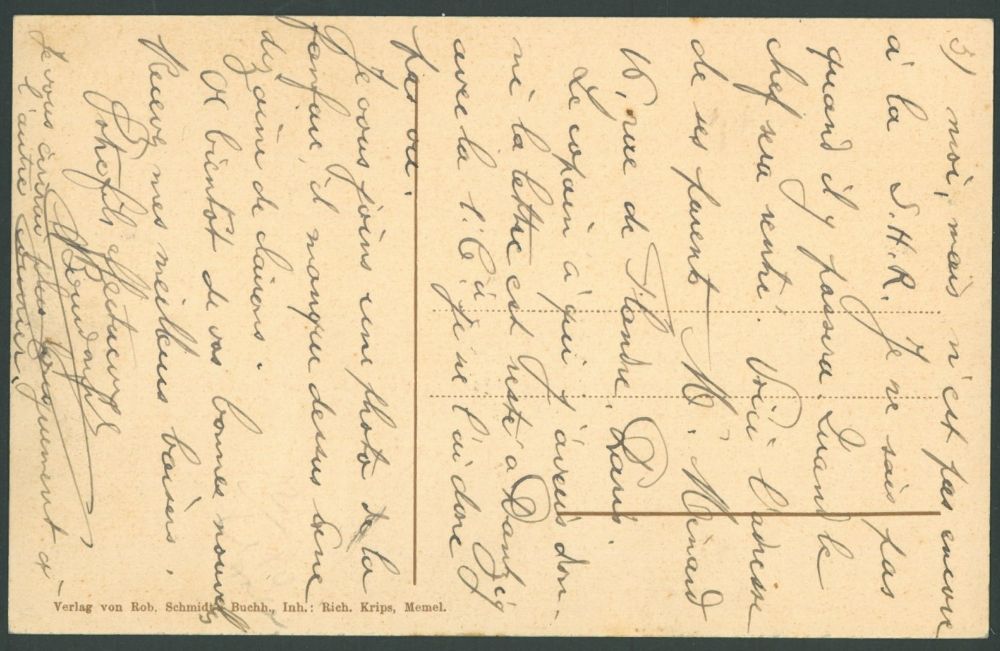 3) moi, mais n'est pas encore
à la S.H.R. Je ne sais pas
quand il y passera. Quand le
chef sera rentré. Voici l'adresse
de ses parents M. Ménard
10, rue de Flandre. Paris.
Le copain à qui j'avais don-
né la lettre est resté à Danzig
avec la 1. Cie je ne l'ai donc
pas vu.
Je vous joins une photo de la
fanfare, il manque dessus une
dizaine de clairons.
A bientôt de vos bonnes nouvelles
Recevez mes meilleurs baisers.
Votre fils affectueux
Je vous écrirai plus longuement
l'autre
Verlag von Rob. Schmidt's Buchh., Inh.: Rich. Krips, Memel.